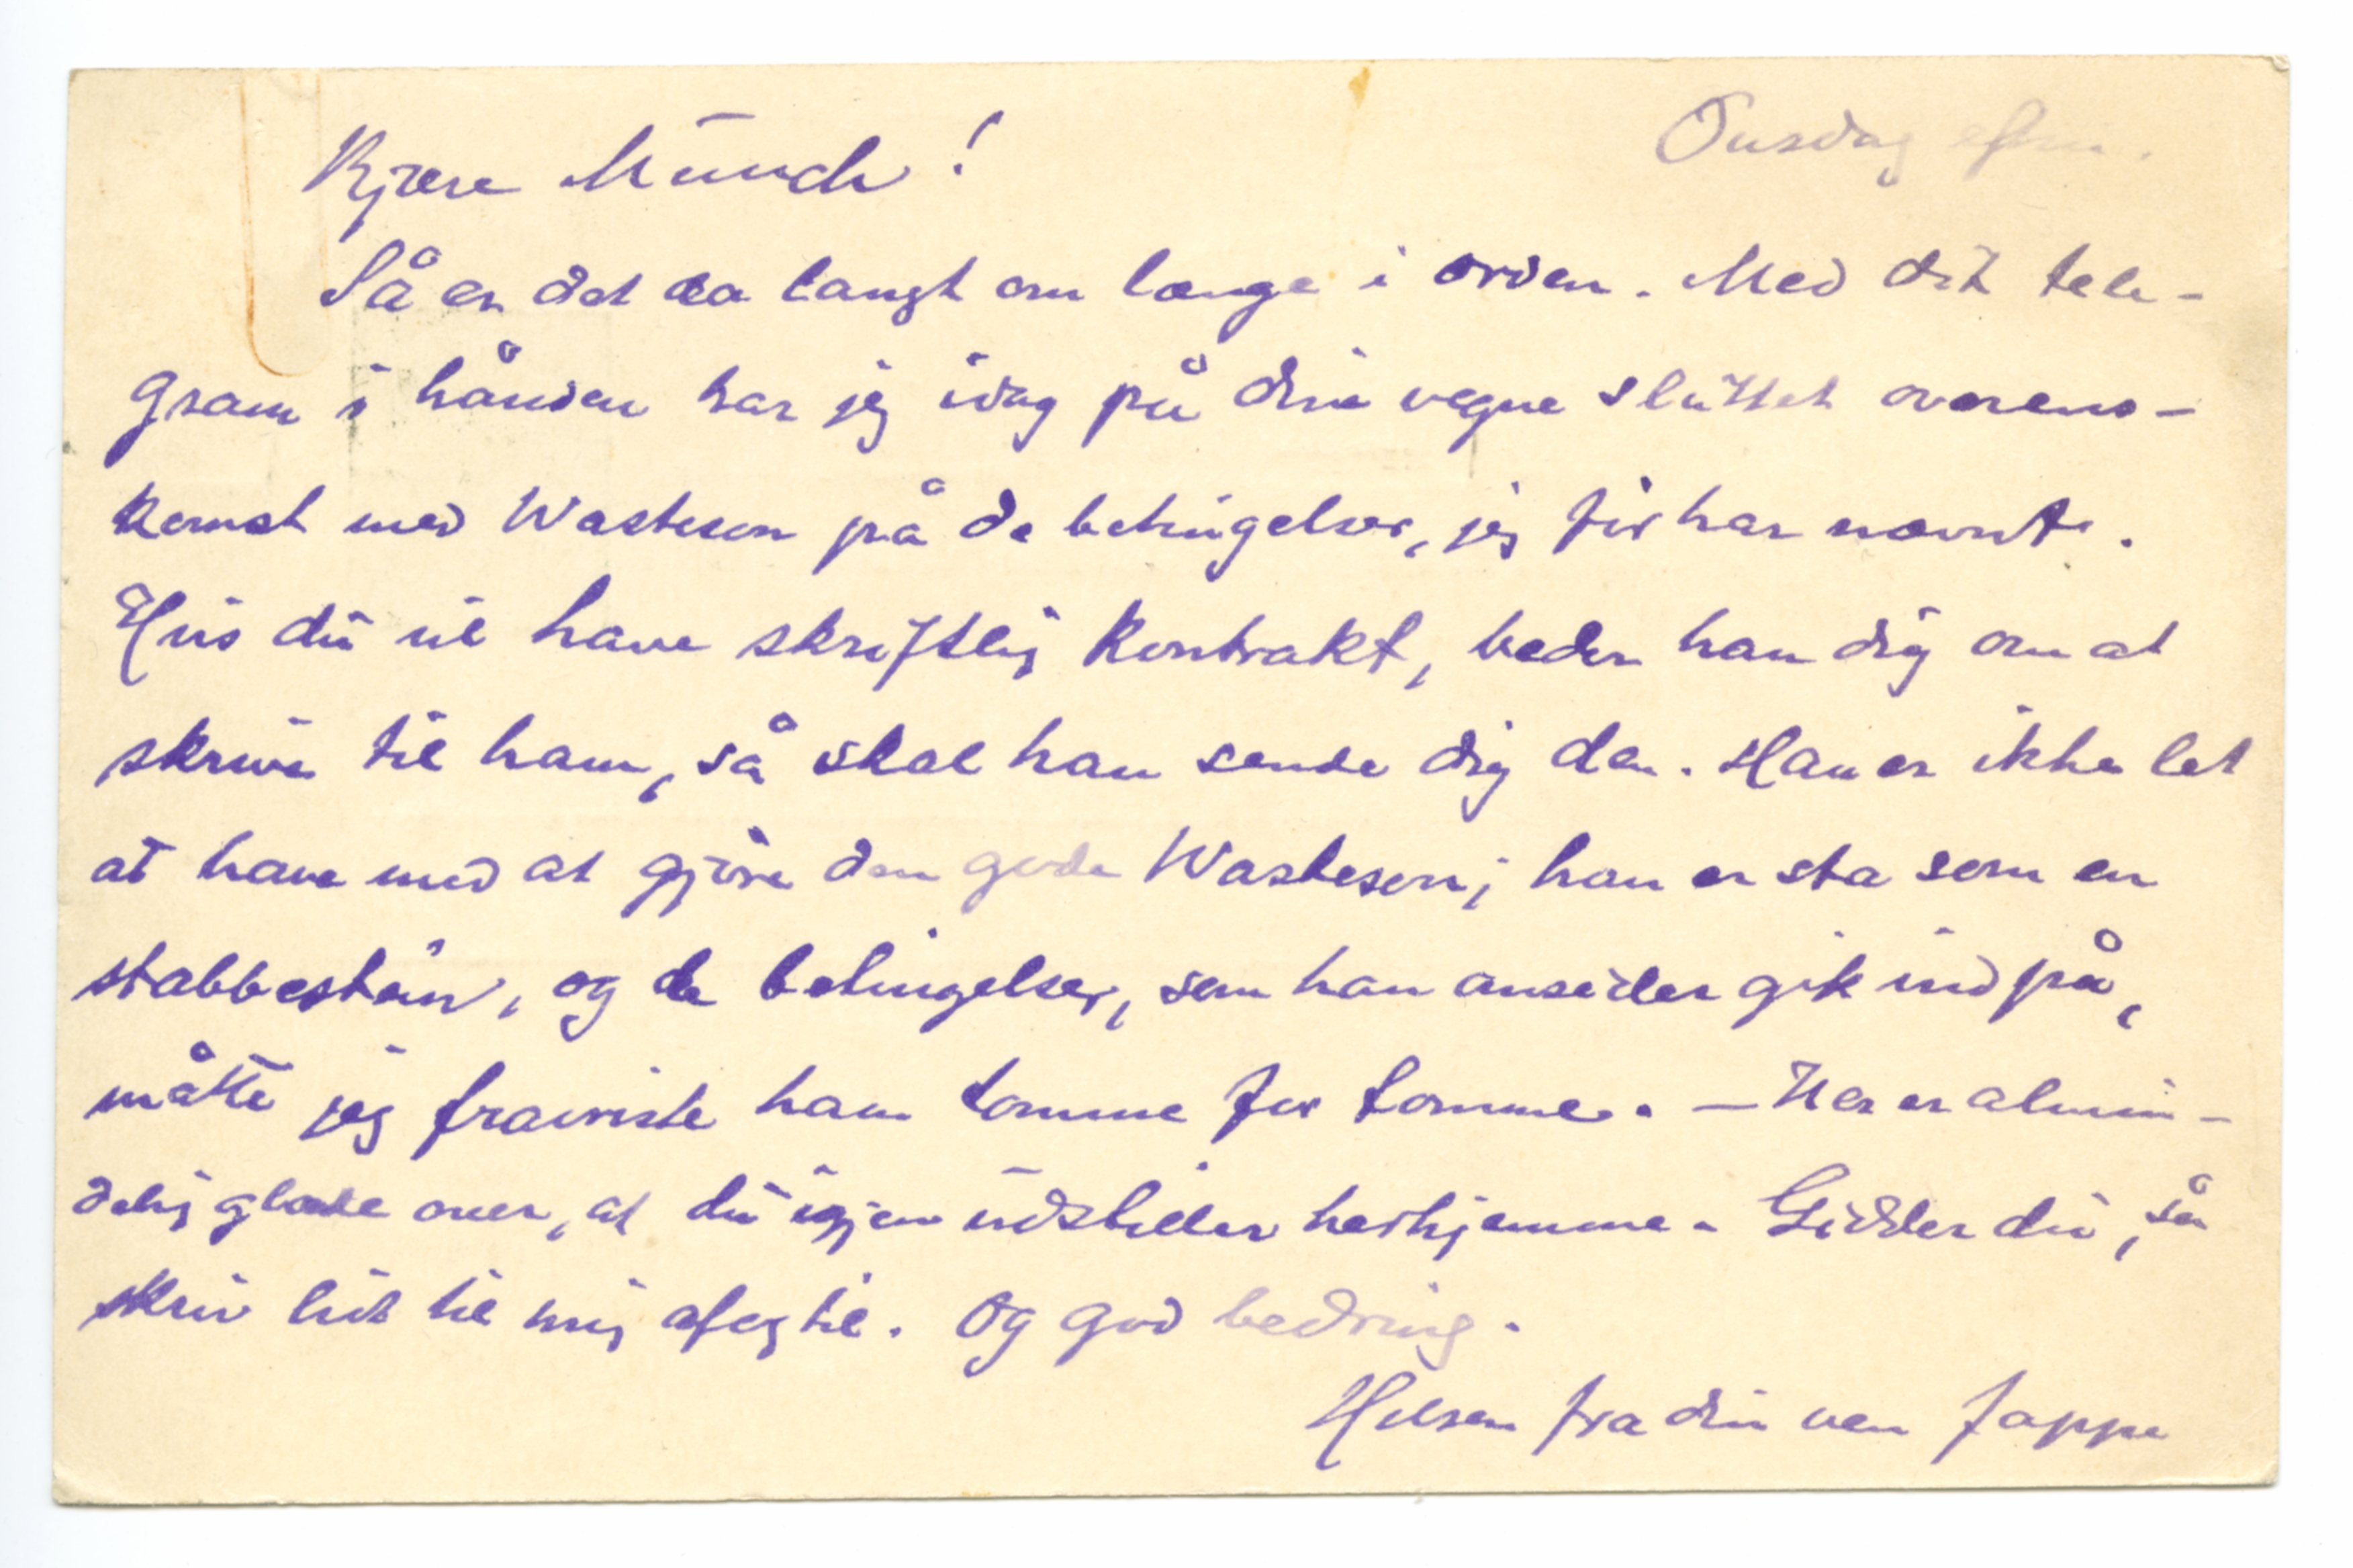 Onsdag efm.
Kjære Munch!
Så er det da langt om længe i orden. Med dit tele-
gram i hånden har jeg idag på dine vegne sluttet overens-
komst med Wasteson på de betingelser, jeg før har nævnt.
Hvis du vil have skriftlig kontrakt, beder han dig om at
skrive til ham, så skal han sende dig den. Han er ikke let
at have med at gjøre den gode Wasteson; han er sta som en
stabbestein, og de betingelser, som han omsider gik ind på,
måtte jeg fravriste ham tomme for tomme. – Her er almin-
delig glæde over, at du igjen udstiller herhjemme. Gidder du, så
skriv lidt til mig af og til. Og god bedring.
Hilsen fra din ven Jappe